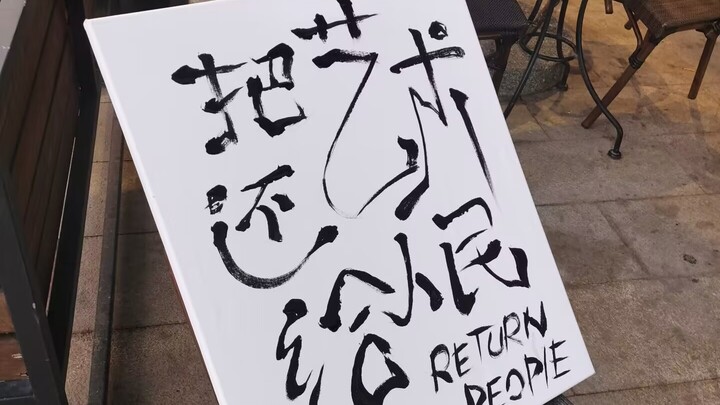 把艺术
还
给小民
RETURN
PEOPLE